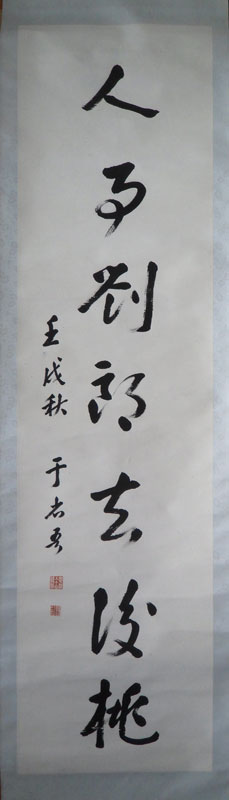 人事劉郎去後桃
壬戌秋 于右吾